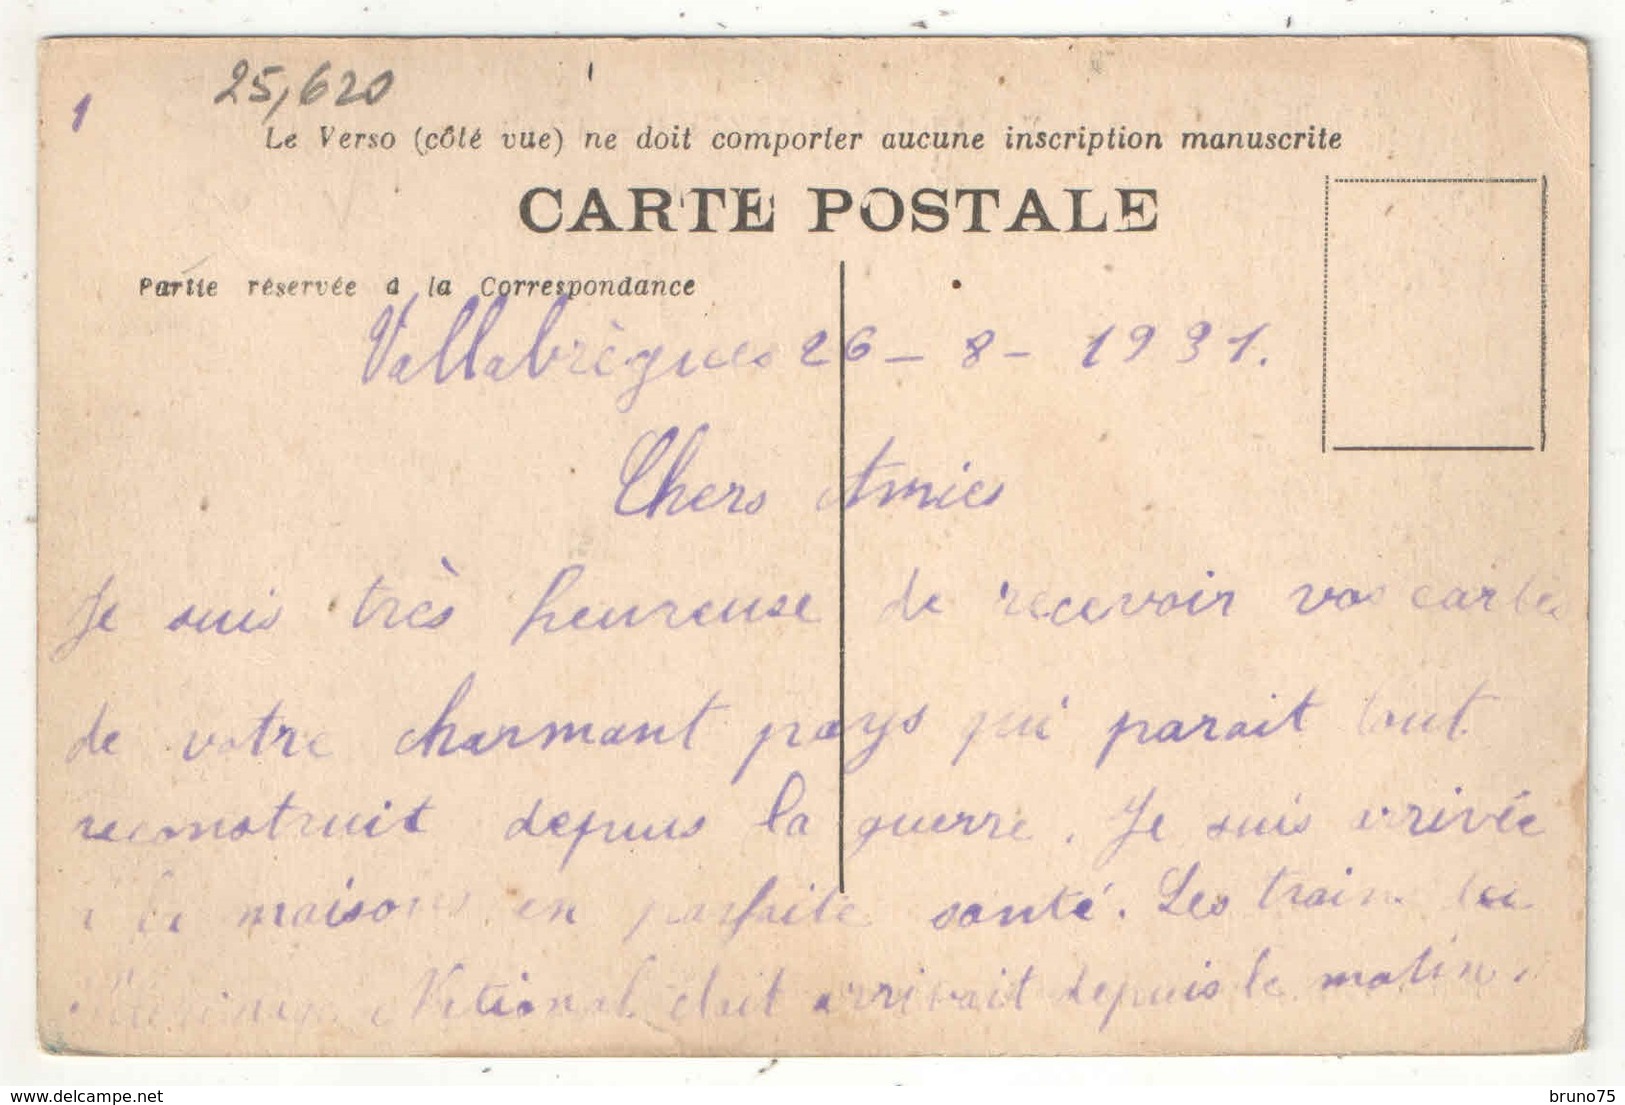 25,620
1
Le Verso (côté vue) ne doit comporter aucune inscription manuscrite
CARTE POSTALE
Partie réservée à la Correspondance
Vallabrègues 26 - 8 - 1931.
Chers Amies
Je suis très heureuse de recevoir vos cartes
de votre charmant pays qui parait tout
reconstruit depuis la guerre. Je suis arrivée
à la maison en parfaite santé. Les train
National était arrivait depuis le matin
delcampe.net
bruno75